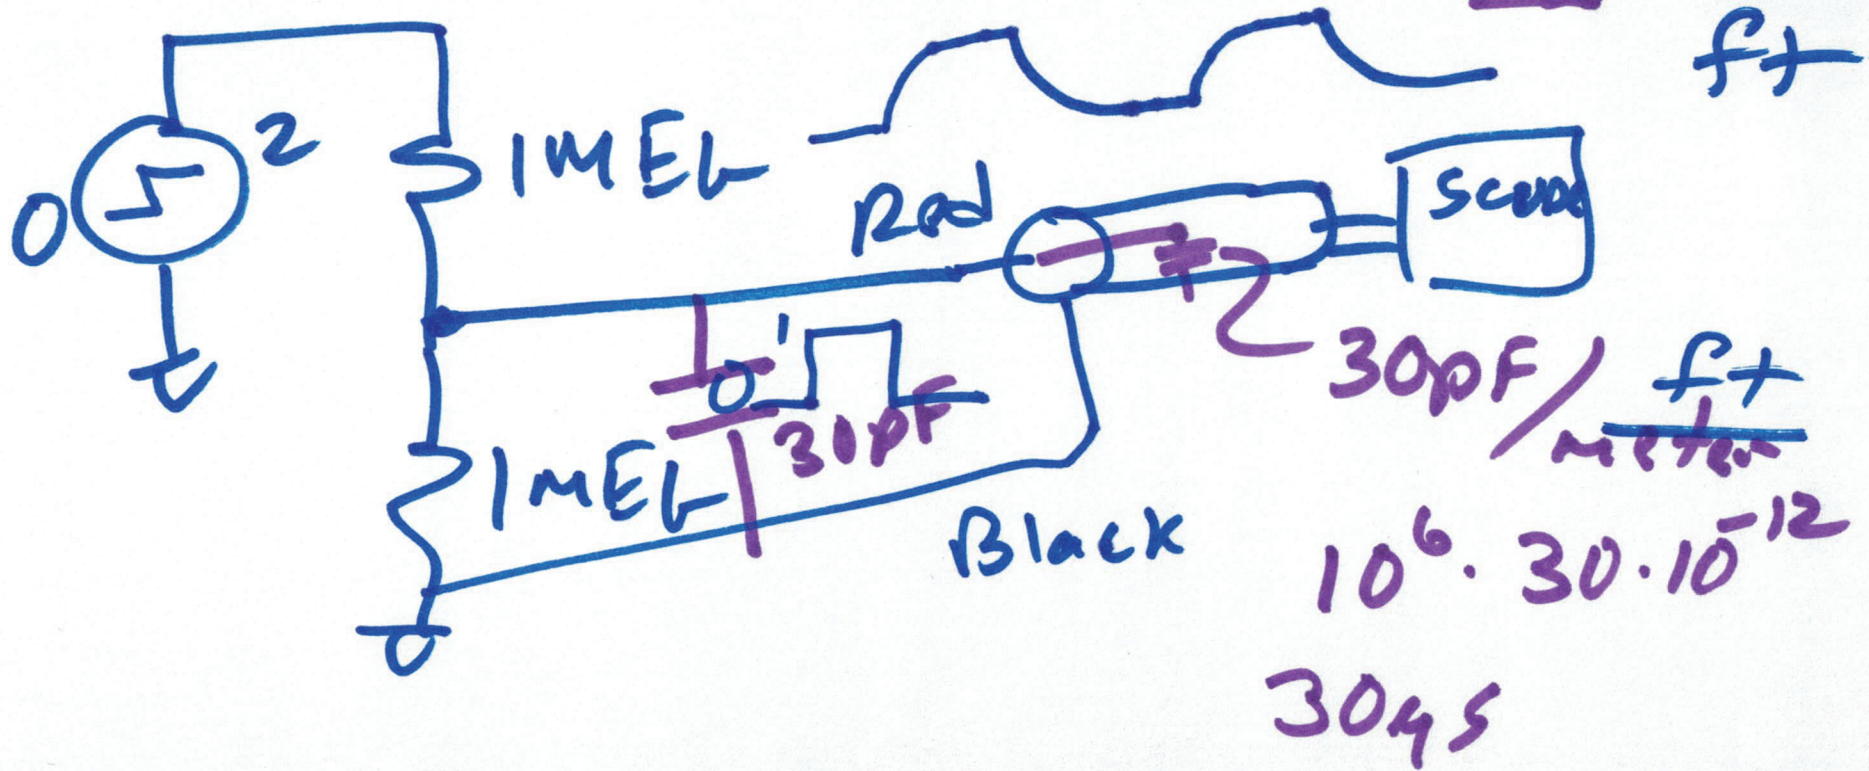 ft
2
0
1MEG
Red
Scope
0 1
30pF
30pF/meter
ft
1MEG
Black
10⁶ · 30 · 10⁻¹²
30μs